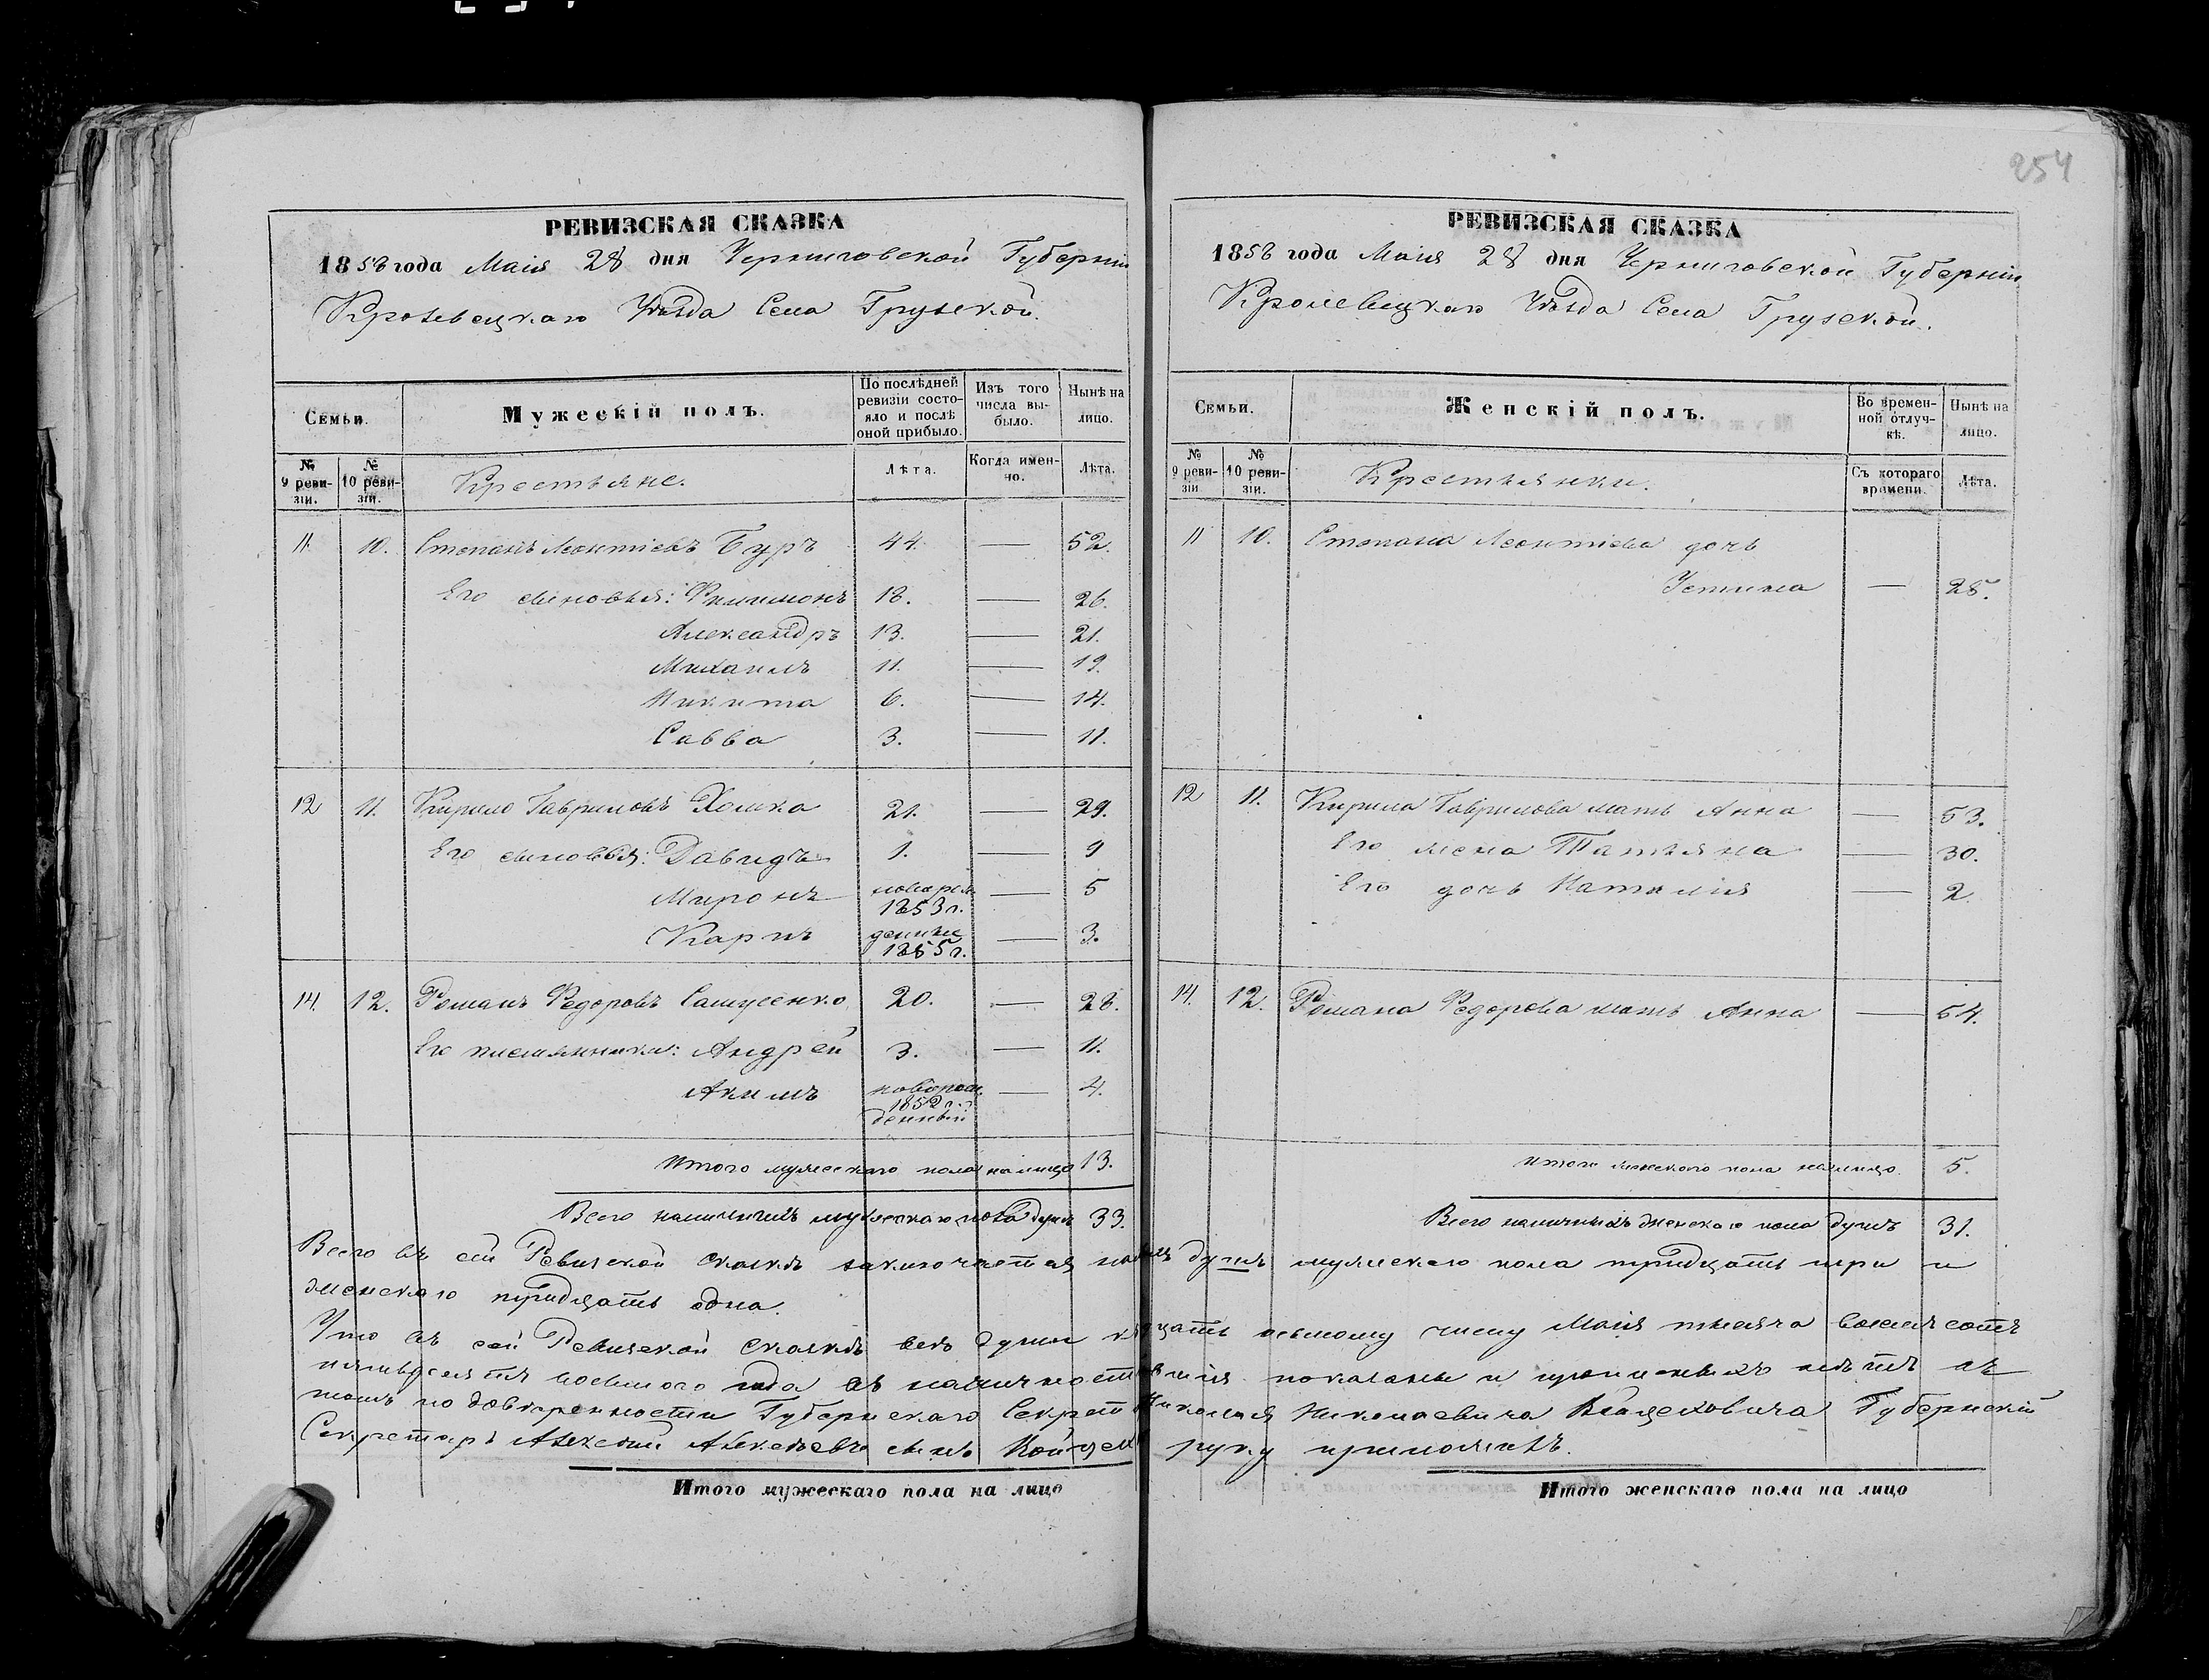 254
РЕВИЗСКАЯ СКАЗКА
1858 года Маія 28 дня Черниговской Губерніи
Кролевецкаго Уѣзда Села Грузской.
Семьи.
Мужескій полъ.
По послѣдней ревизіи состояло и послѣ оной прибыло.
Изъ того числа выбыло.
Нынѣ на лицо.
№ 9 ревизіи.
№ 10 ревизіи.
Крестьяне.
Лѣта.
Когда именно.
Лѣта.
11. 10. Степанъ Леонтіевъ Буръ 44. — 52.
Его сыновья: Филимонъ 18. — 26.
Александръ 13. — 21.
Михаилъ 11. — 19.
Никита 6. — 14.
Савва 3. — 11.
12 11. Кирило Гавриловъ Хомка 21. — 29.
Его сыновья: Давидъ 1. — 9
Миронъ — 5
1853 г.
Карпъ — 3.
1855 г.
14. 12. Романъ Федоровъ 20. — 28.
Его племянники: Андрей 3. — 11.
Акимъ новорож — 4.
185 г.
денный
Итого мужескаго пола на лицо 13.
Всего наличныхъ мужескаго пола душъ 33.
РЕВИЗСКАЯ СКАЗКА
1858 года Маія 28 дня Черниговской Губерніи
Кролевецкаго Уѣзда Села Грузской.
Семьи.
Женскій полъ.
Во временной отлучкѣ.
Нынѣ на лицо.
№ 9 ревизіи
№ 10 ревизіи.
Крестьянки.
Съ котораго времени.
Лѣта.
11 10. Степана Леонтіева дочь
Устина — 25.
12 11. Кирила Гаврилова мать Анна — 53.
Его жена Татьяна — 30.
Его дочь Наталия — 2.
14. 12. Романа Федорова мать Анна — 54.
Итого женскаго пола на лицо. 5.
Всего наличныхъ женскаго пола душъ 31.
Всего въ сей Ревизской сказкѣ заключается душъ мужескаго пола тридцать три и
женскаго тридцать одна.
Что въ сей Ревизской сказкѣ всѣ души къ осьмому числу Маія тысяча восемьсотъ
пятьдесятъ восьмого года въ наличности показаны и прописныхъ нѣтъ въ
томъ по довѣренности Губернскаго Николая Николаевича Губернскій
Секретарь Алексѣй Алексѣевъ сынъ руку приложилъ.
Итого мужескаго пола на лицо
Итого женскаго пола на лицо